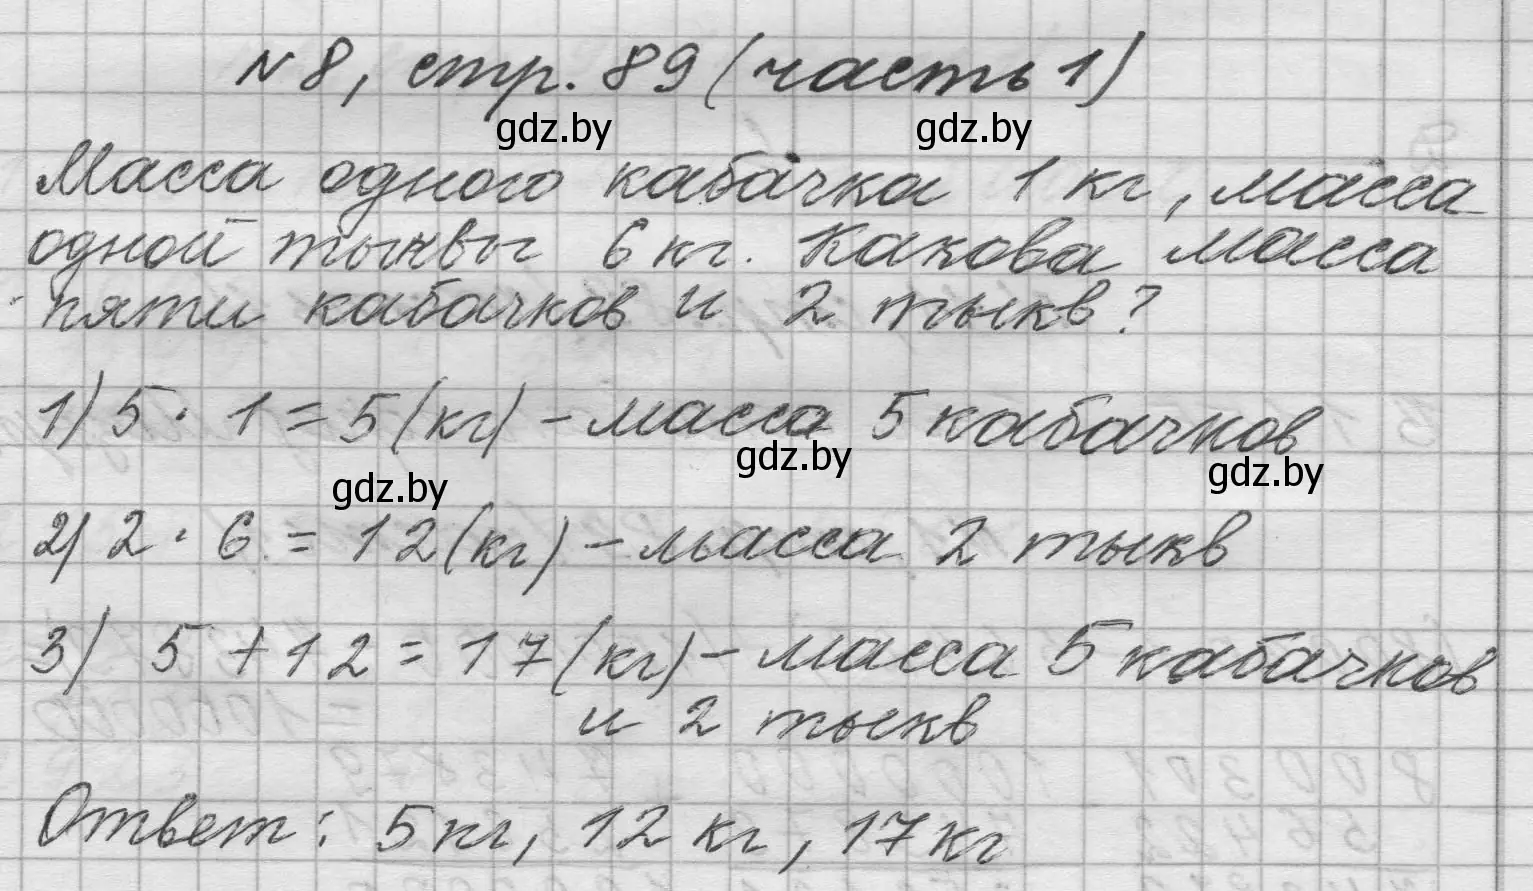 N 8, стр. 89 (часть 1)
gdz.by gdz.by
Масса одного кабачка 1 кг, масса
одной тыквы 6 кг. Какова масса
пяти кабачков и 2 тыкв?
1) 5 · 1 = 5 (кг) - масса 5 кабачков
gdz.by gdz.by gdz.by
2) 2 · 6 = 12 (кг) - масса 2 тыкв
3) 5 + 12 = 17 (кг) - масса 5 кабачков
и 2 тыкв
Ответ: 5 кг, 12 кг, 17 кг